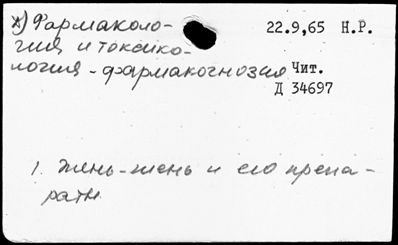 х) Фармаколо-
гия и токсико-
логия - фармакогнозия
22.9,65 Н.Р.
Чит.
Д 34697
1. Жень-шень и его препа-
раты